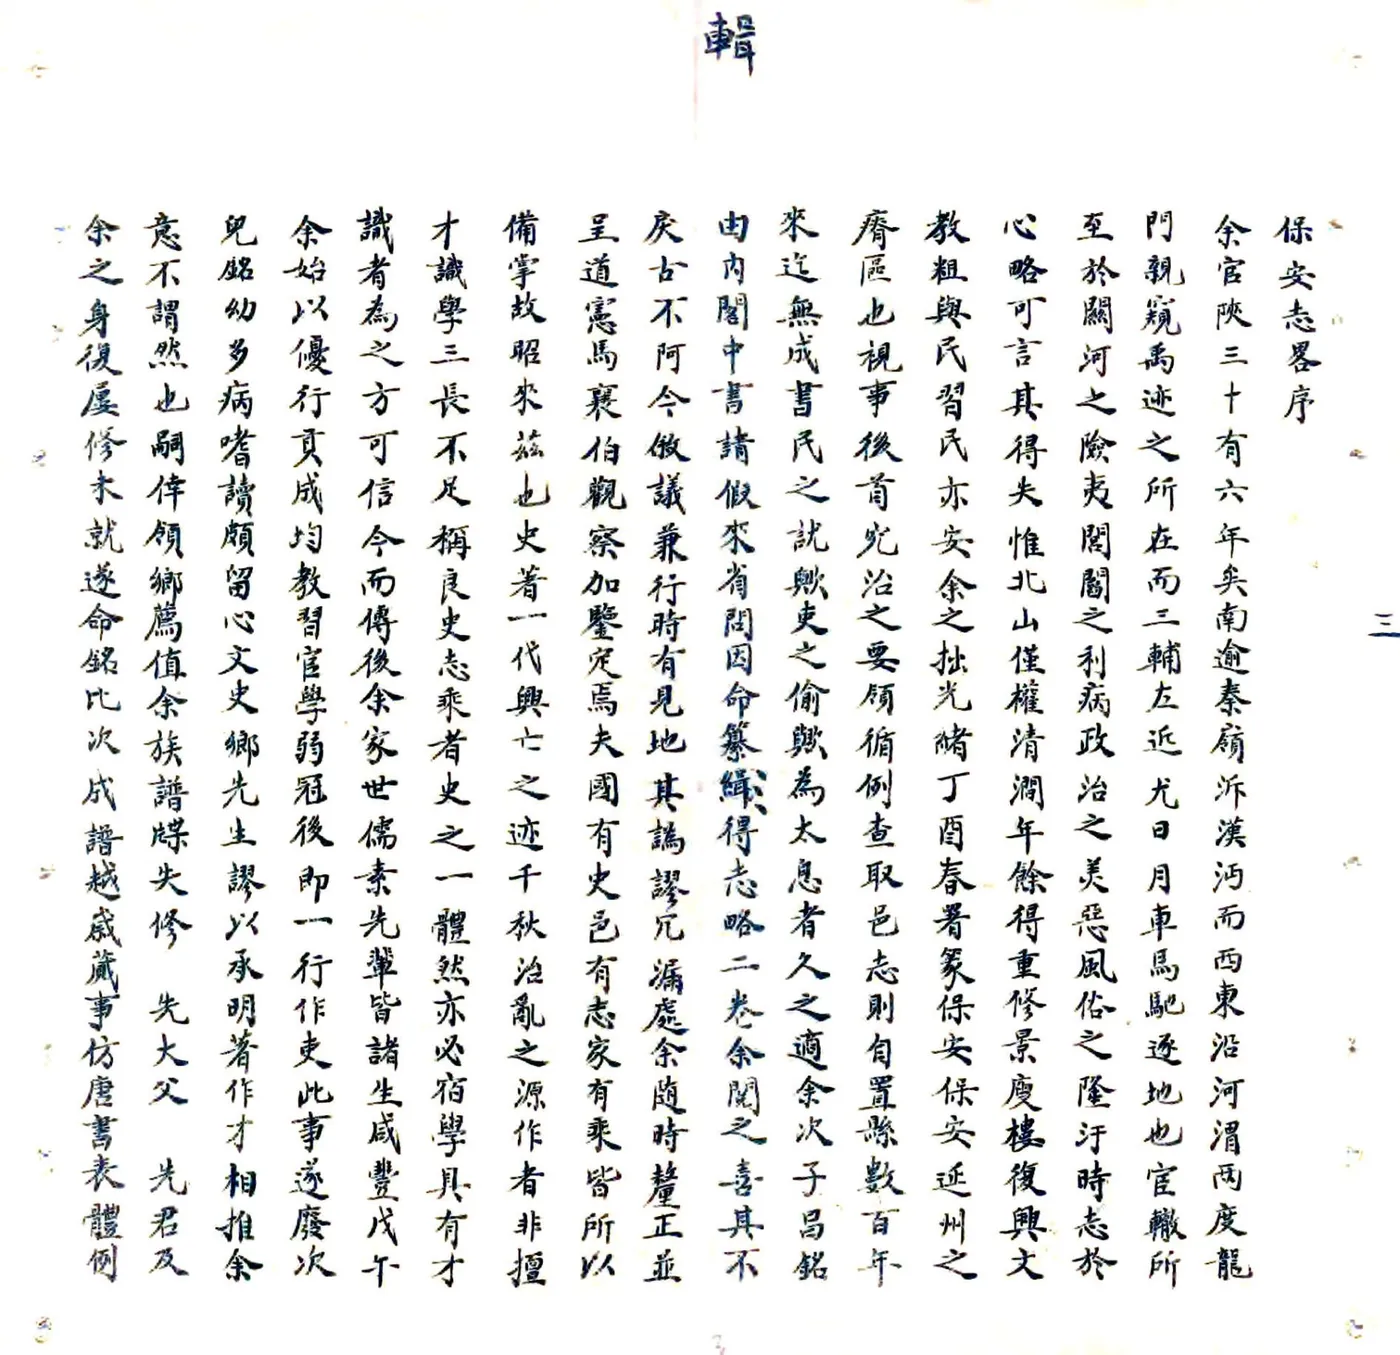 輯
三
保安志畧序
余官陝三十有六年矣南逾秦嶺泝漢沔而西東沿河渭兩度龍
門親窺禹迹之所在而三輔左近尤日月車馬馳逐地也宦轍所
至於關河之險夷閭閻之利病政治之美惡風俗之隆汙時志於
心略可言其得失惟北山僅權清澗年餘得重修景廋樓復興文
教粗與民習民亦安余之拙光緒丁酉春署篆保安保安延州之
瘠區也視事後首究治之要領循例查取邑志則自置縣數百年
來迄無成書民之訧歟吏之偷歟為太息者久之適余次子昌銘
由內閣中書請假來省問因命纂緝得志略二卷余閱之喜其不
戾古不阿今倣議兼行時有見地其譌謬冗漏處余随時釐正並
呈道憲馬襄伯觀察加鑒定焉夫國有史邑有志家有乘皆所以
備掌故昭來茲也史著一代興亡之迹千秋治亂之源作者非擅
才識學三長不足稱良史志乘者史之一體然亦必宿學具有才
識者為之方可信今而傳後余家世儒素先輩皆諸生咸豐戊午
余始以優行貢成均教習官學弱冠後即一行作吏此事遂廢次
兒銘幼多病嗜讀頗留心文史鄉先生謬以承明著作才相推余
意不謂然也嗣倖領鄉薦值余族譜牒失修 先大父 先君及
余之身復屢修未就遂命銘比次成譜越歲蕆事仿唐書表體例